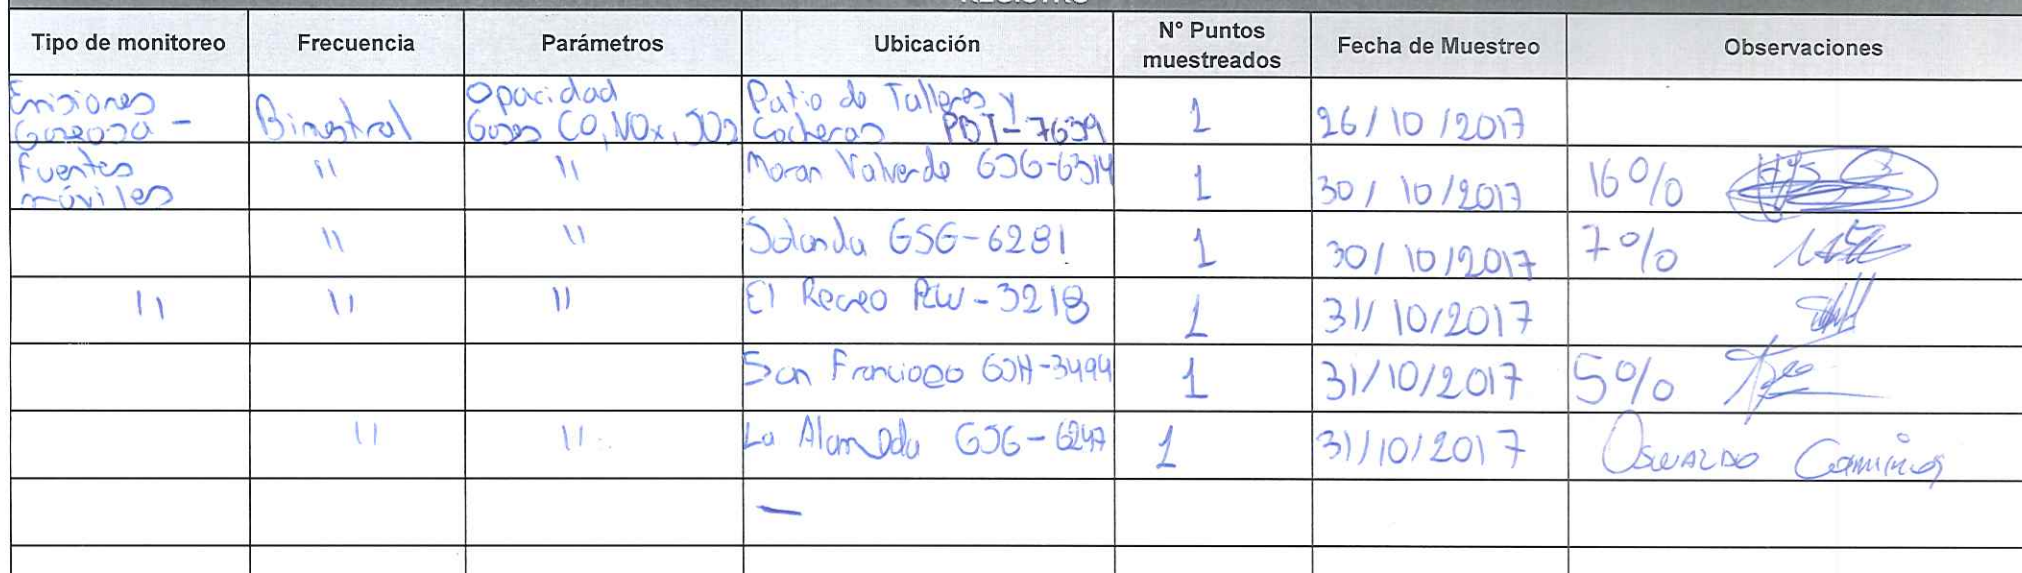 REGISTRO
Tipo de monitoreo Frecuencia Parámetros Ubicación N° Puntos muestreados Fecha de Muestreo Observaciones
Emisiones Gaseosa - Bimestral Opacidad Gases CO, NOx, SO2 Patio de Talleres y Cocheras PBT-7639 1 26/10/2017
Fuentes móviles " " Moran Valverde GSG-6314 1 30/10/2017 16%
" " Solanda GSG-6281 1 30/10/2017 7%
" " " El Recreo -3218 1 31/10/2017
San Francisco GSH-3494 1 31/10/2017 5%
" " La Alameda GSG-6247 1 31/10/2017 Oswaldo
—